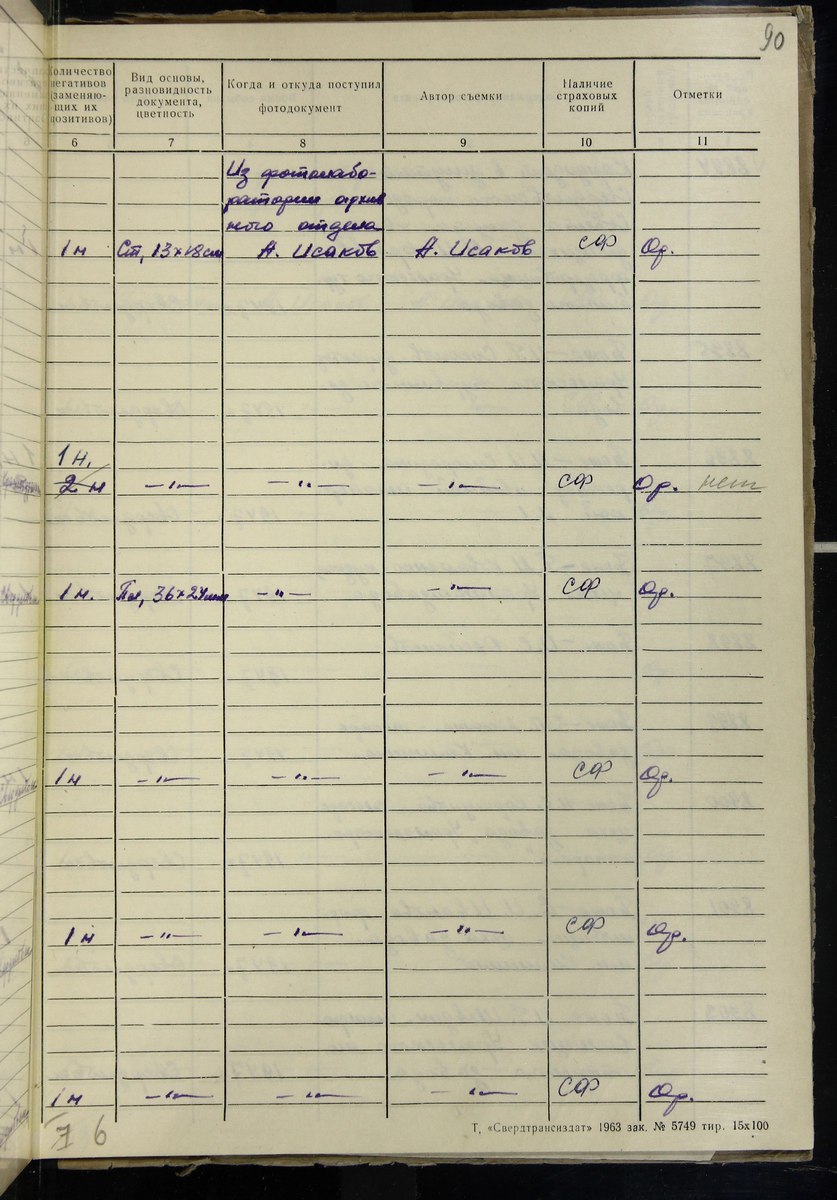 90
Количество негативов (заменяющих их позитивов)
Вид основы, разновидность документа, цветность
Когда и откуда поступил фотодокумент
Автор съемки
Наличие страховых копий
Отметки
6 7 8 9 10 11
Из фотолабо-
ратории архив
ного отдела
1 н Ст, 13×18 см А. Исаков А. Исаков СФ Ор.
1 н.
2 н —"— —"— —"— СФ Ор. нет
1 н. Пл, 36×24 мм —"— —"— СФ Ор.
1 н —"— —"— —"— СФ Ор.
1 н —"— —"— —"— СФ Ор.
1 н —"— —"— —"— СФ Ор.
7 6
Т, «Свердтрансиздат» 1963 зак. № 5749 тир. 15х100